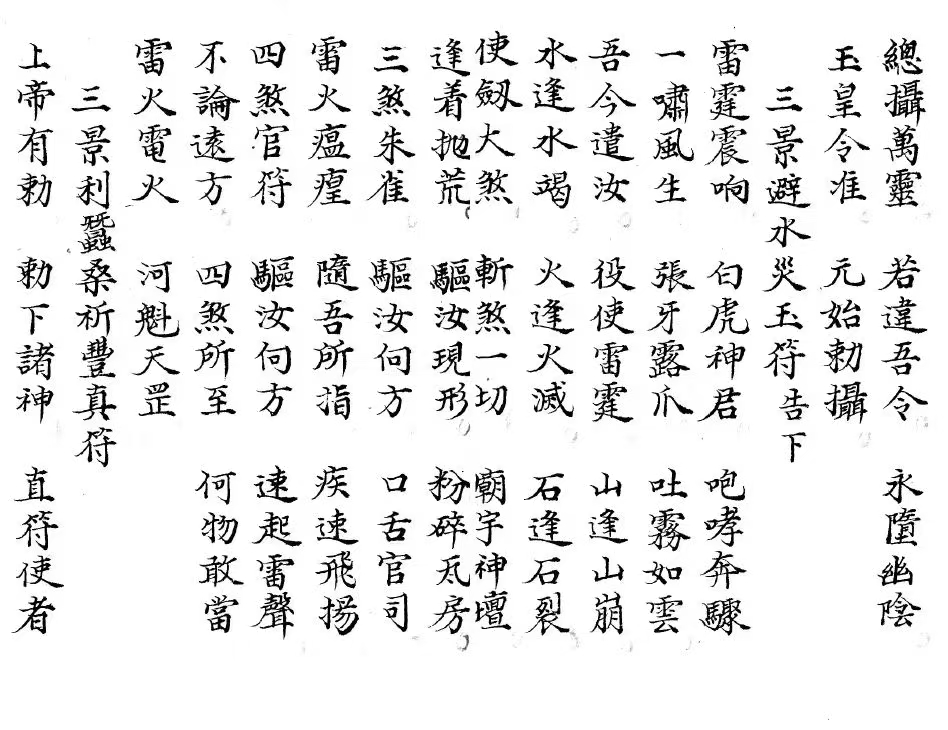 總攝萬靈 若違吾令 永墮幽陰
玉皇令准 元始勅攝
三景避水災玉符告下
雷霆震响 白虎神君 咆哮奔驟
一嘯風生 張牙露爪 吐霧如雲
吾今遣汝 役使雷霆 山逢山崩
水逢水竭 火逢火滅 石逢石裂
使劔大煞 斬煞一切 廟宇神壇
逢着抛荒 驅汝現形 粉碎瓦房
三煞朱雀 驅汝何方 口舌官司
雷火瘟瘟 隨吾所指 疾速飛揚
四煞官符 驅汝何方 速起雷聲
不論遠方 四煞所至 何物敢當
雷火電火 河魁天罡
三景利蠶桑祈豐真符
上帝有勅 勅下諸神 直符使者